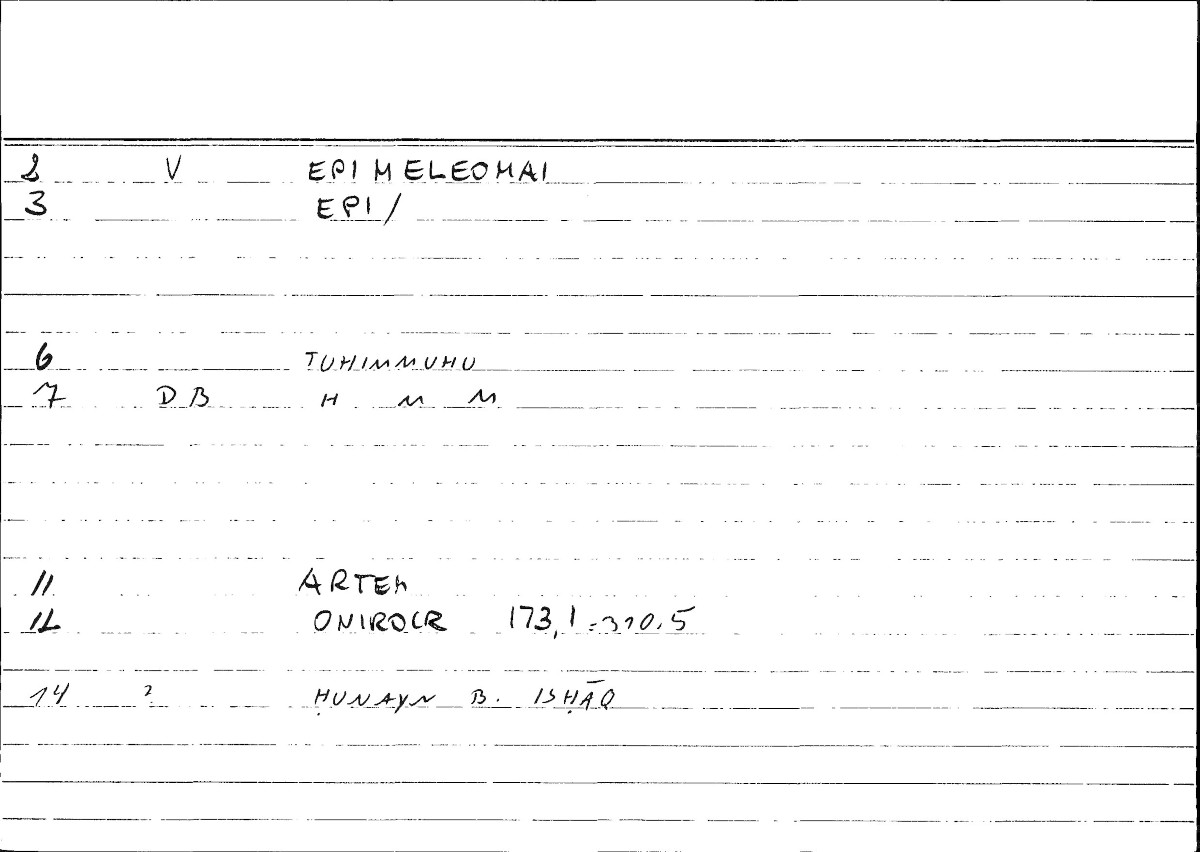 2 V EPIMELEOMAI
3 EPI/
6 TUHIMMUHU
7 DB H M M
11 ARTEM
12 ONIROCR 173,1 = 310.5
14 ? ḤUNAYN B. ISḤĀQ